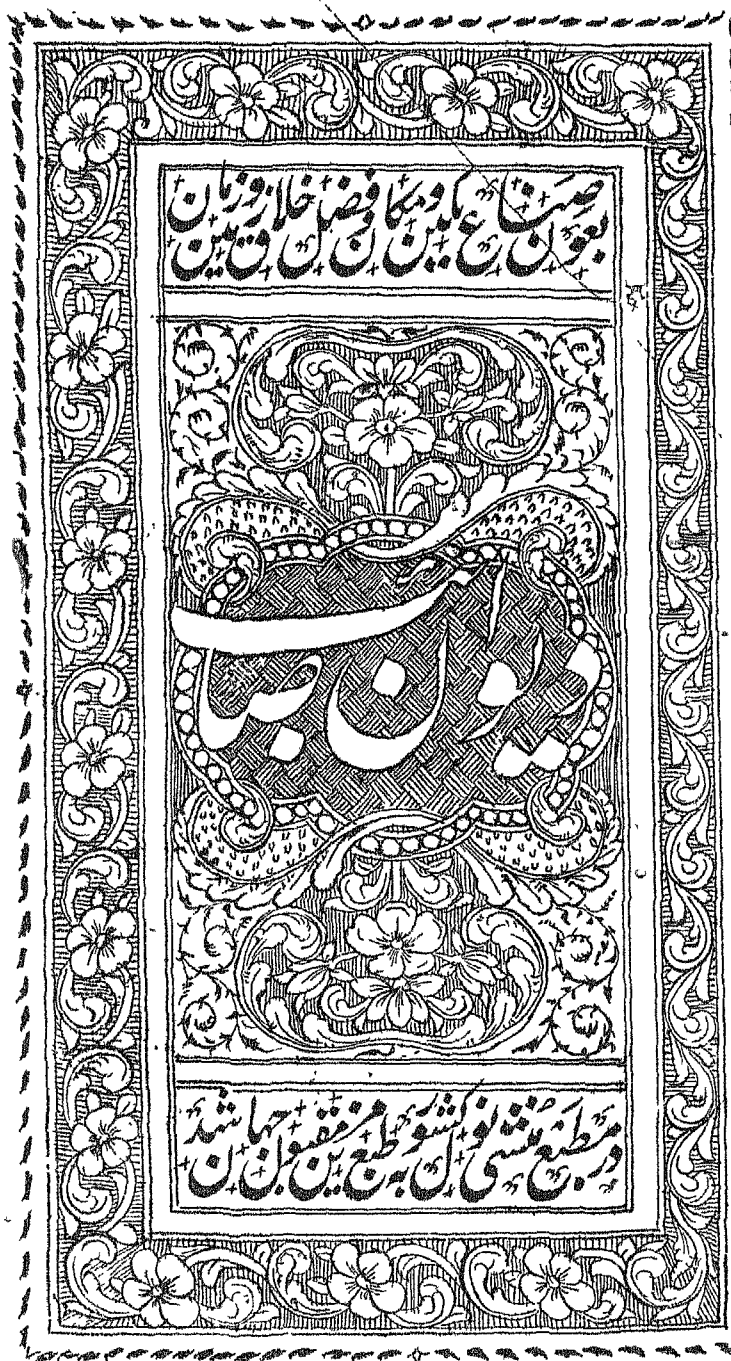 بعون صناع مکین و مکان و فضل خلاق زمین و زمان
دیوان صائب
در مطبع منشی نولکشور به طبع مزین مقبول جهان شد